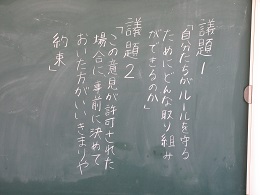 議題1
「自分たちがルールを守る
ためにどんな取り組み
ができるのか」
議題2
「この意見が許可された
場合に事前に決めて
おいた方がいいきまりや
約束」